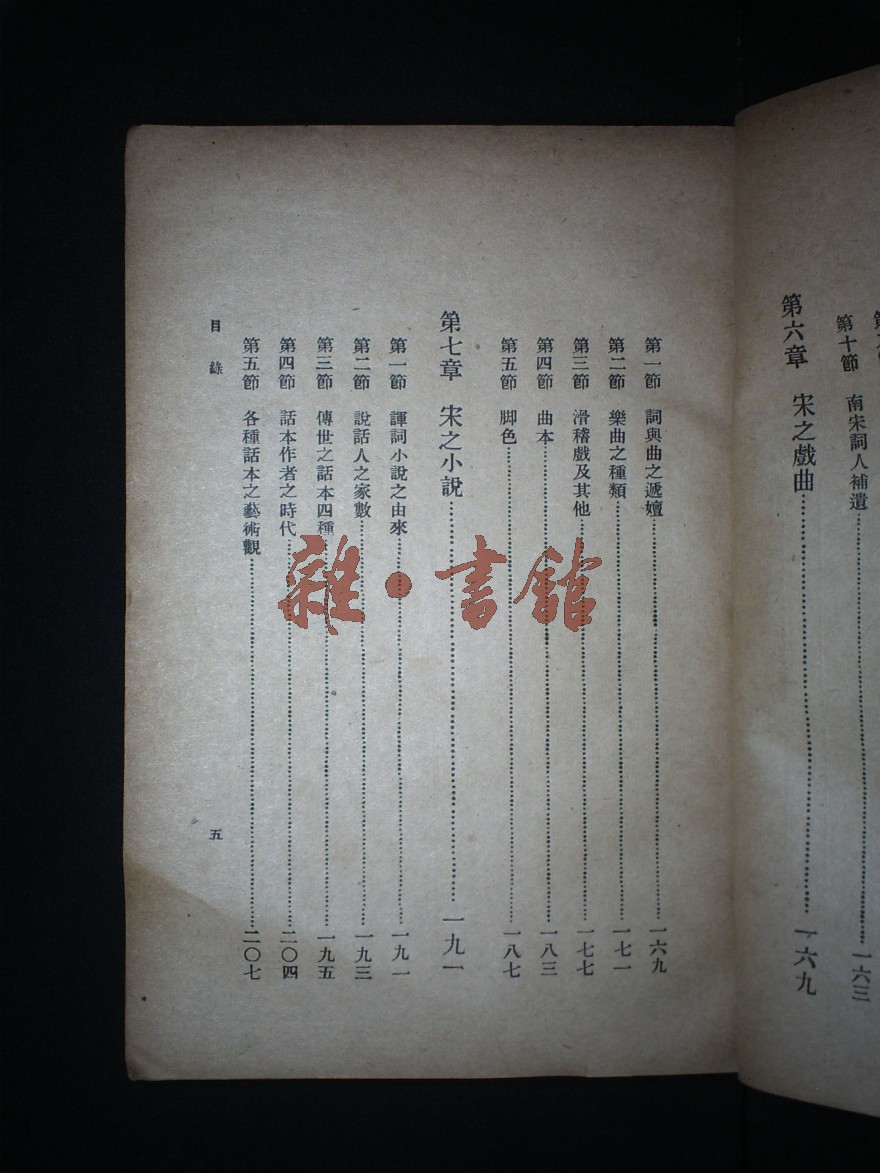 第十節　南宋詞人補遺……一六三
第六章　宋之戲曲……一六九
第一節　詞與曲之遞嬗……一六九
第二節　樂曲之種類……一七一
第三節　滑稽戲及其他……一七七
第四節　曲本……一八三
第五節　脚色……一八七
第七章　宋之小說……一九一
第一節　諢詞小說之由來……一九一
第二節　說話人之家數……一九三
第三節　傳世之話本四種……一九五
第四節　話本作者之時代……二〇四
第五節　各種話本之藝術觀……二〇七
目錄
五
雜·書館